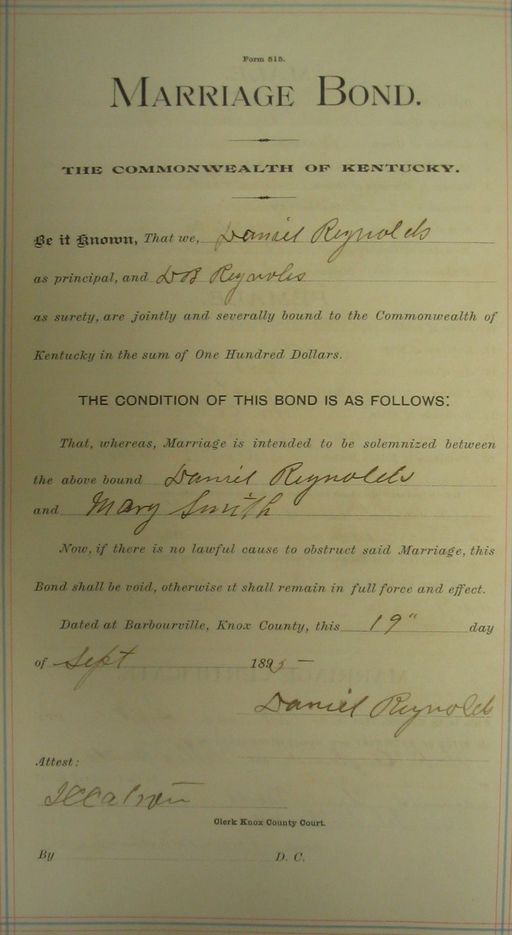 Form 515.
MARRIAGE BOND.
THE COMMONWEALTH OF KENTUCKY.
Be it Known, That we, Daniel Reynolds
as principal, and D B Reynolds
as surety, are jointly and severally bound to the Commonwealth of
Kentucky in the sum of One Hundred Dollars.
THE CONDITION OF THIS BOND IS AS FOLLOWS:
That, whereas, Marriage is intended to be solemnized between
the above bound Daniel Reynolds
and Mary Smith
Now, if there is no lawful cause to obstruct said Marriage, this
Bond shall be void, otherwise it shall remain in full force and effect.
Dated at Barbourville, Knox County, this 19" day
of Sept 1895
Daniel Reynolds
Attest:
Clerk Knox County Court.
By D. C.